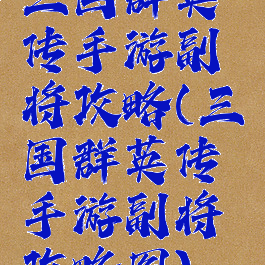 三国群英
传手游副
将攻略(三
国群英传
手游副将
攻略图)